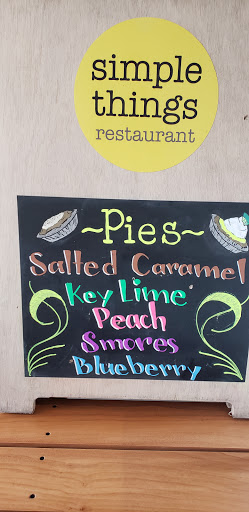 simple
things
restaurant
~Pies~
Salted Caramel
Key Lime
Peach
Smores
Blueberry